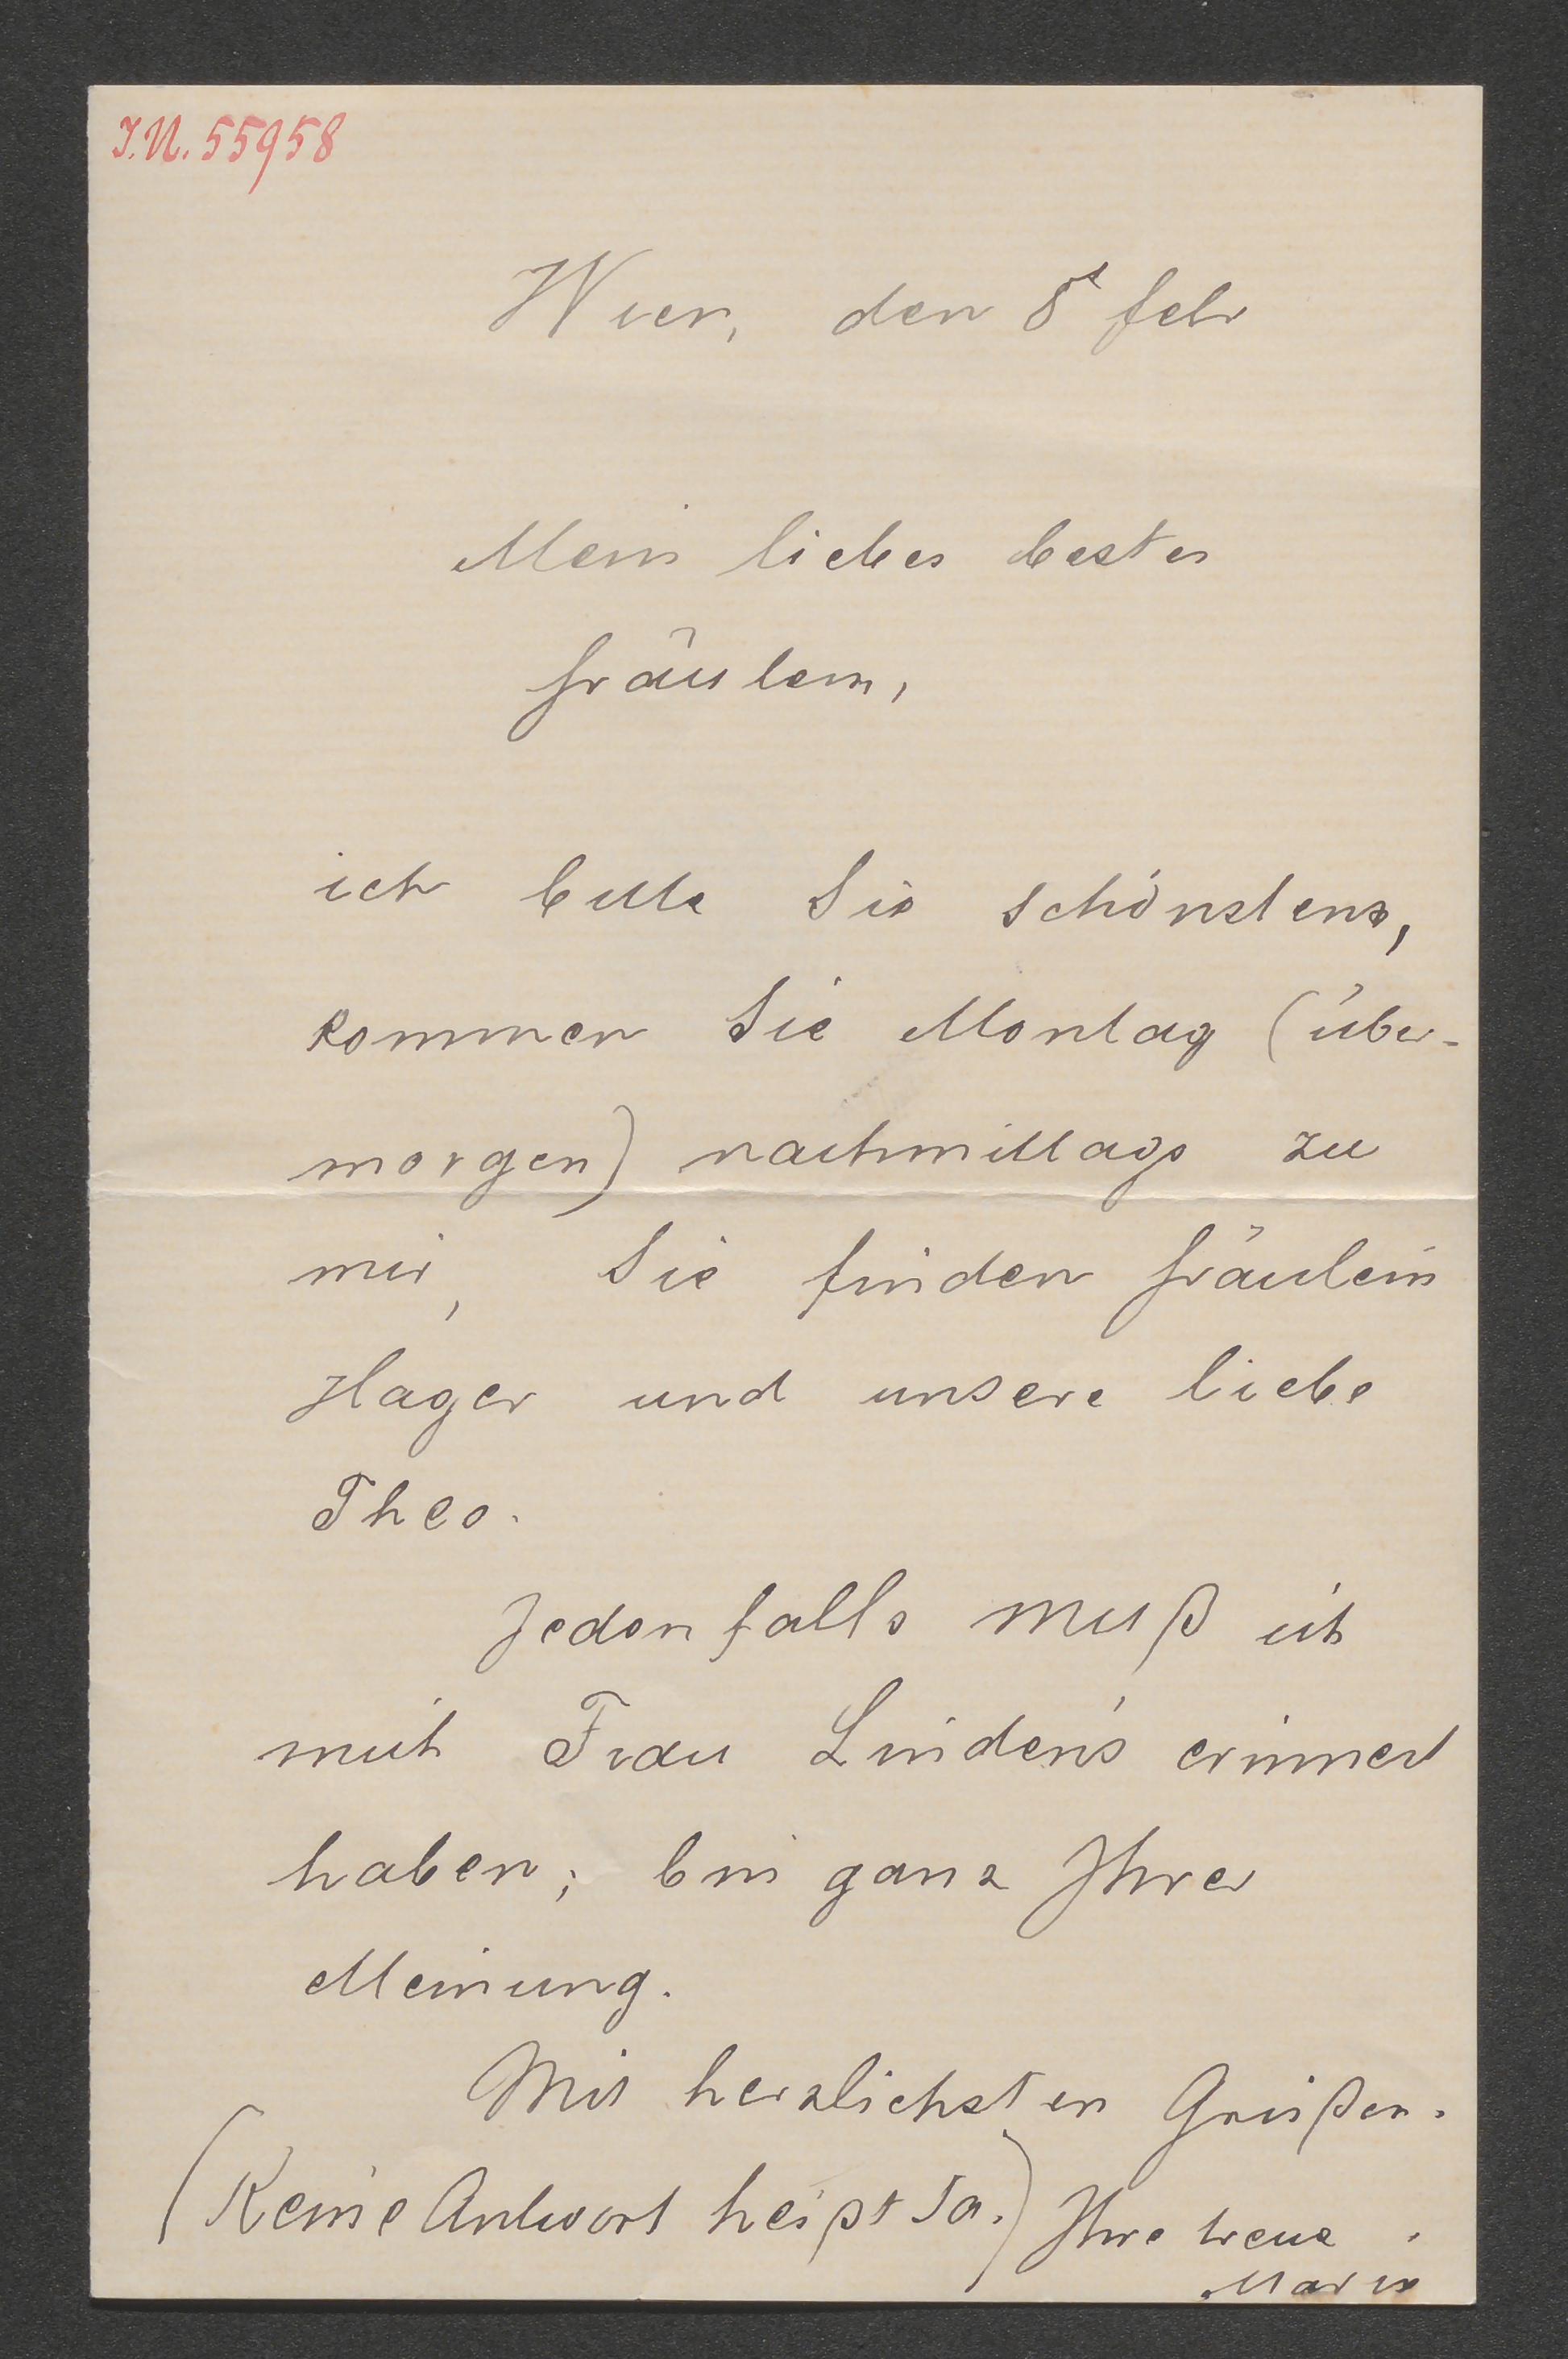 I.N. 55958
Wien, den 8t febr
Mein liebes bestes
fräulein,
ich bitte Sie schönstens,
kommen Sie Montag (über-
morgen) nachmittags zu
mir, Sie finden fräulein
Hager und unsere liebe
Theo.
Jedenfalls muß ich
mich Frau Linden's erinnert
haben; bin ganz Ihrer
Meinung.
Mit herzlichsten Grüßen.
(Keine Antwort heißt Ja.) Ihre treue
Marie